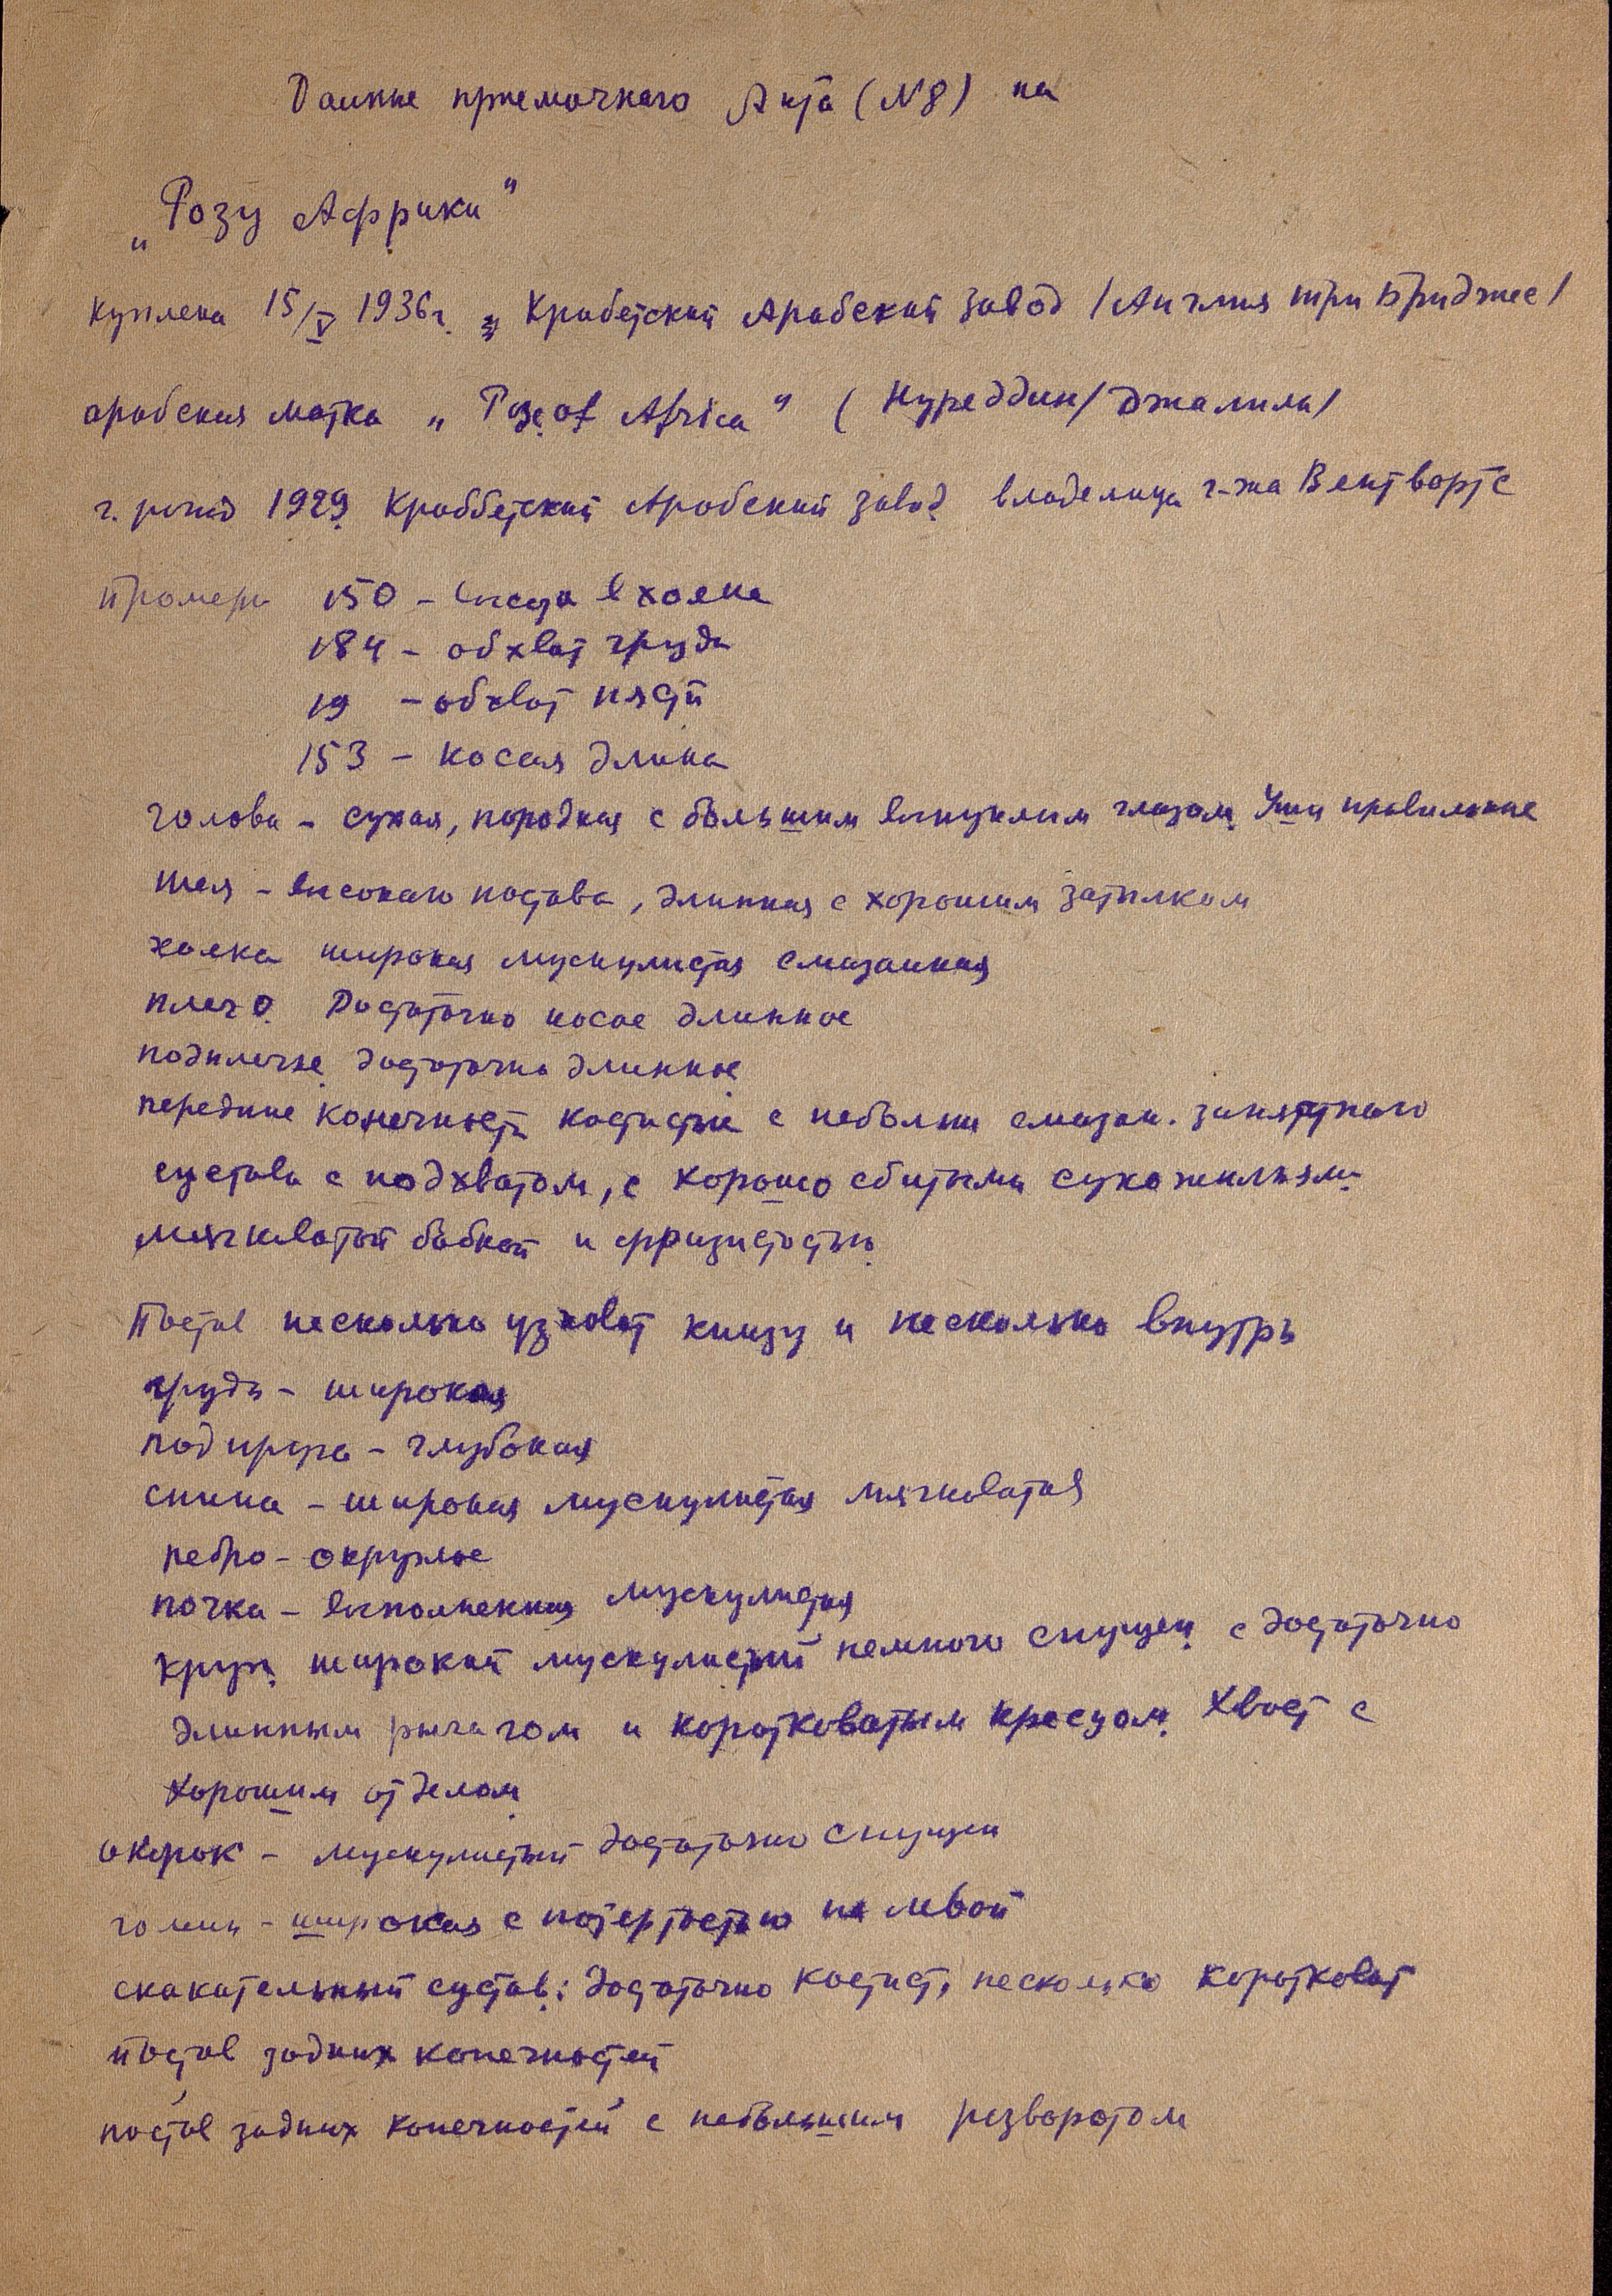 Данные приемочного Акта (N8) на
„Розу Африки"
куплена 15/V 1936г. Крабетский Арабский завод /Англия три Бриджес/
арабская матка „Rose of Africa" (Нуреддин/Джалила/
г. рожд 1929 Краббетский Арабский завод владелица г-жа Вентвортс
промеры 150 – высота в холке
184 – обхват груди
19 – обхват пясти
153 – косая длина
голова – сухая, породная с большим выпуклым глазом. Уши правильные
шея – высокого постава, длинная с хорошим затылком
холка широкая мускулистая смазанная
плечо. Достаточно косое длинное
подплечье достаточно длинное
передние конечности костистые с небольш смазан. запястного
сустава с подхватом, с хорошо сбитыми сухожильями
мягковатой бабкой и фризистостью.
Постав несколько узковат книзу и несколько внутрь
грудь – широкая
подпруга – глубокая
спина – широкая мускулистая мягковатая
ребро – округлое
почка – выполненная мускулистая
круп широкий мускулистый немного спущен с достаточно
длинным рычагом и коротковатым кресцом. Хвост с
хорошим отделом
окорок – мускулистый достаточно спущен
голень – широкая с потертостью на левой
скакательный сустав: достаточно костист, несколько коротковат
постав задних конечностей
постав задних конечностей с небольшим разворотом